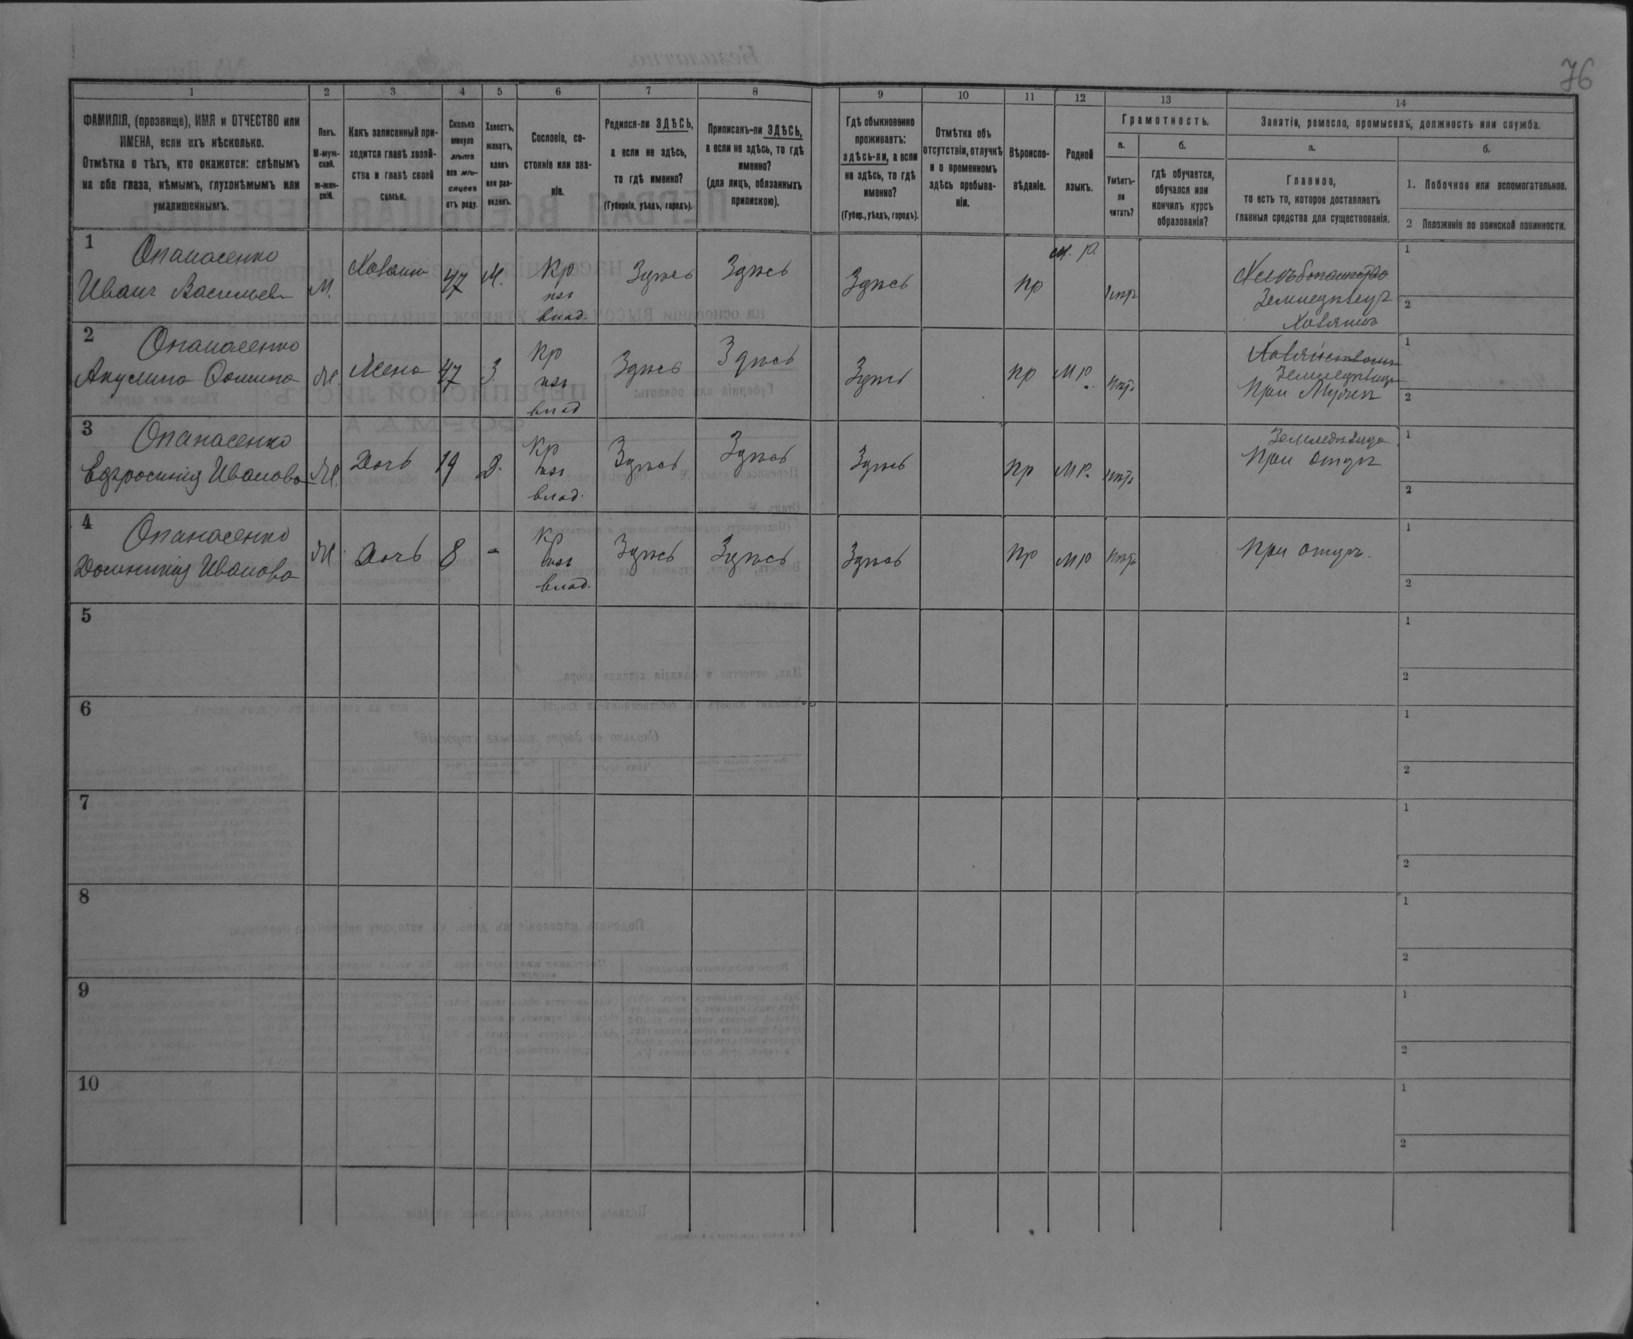 76
1 2 3 4 5 6 7 8 9 10 11 12 13 14
ФАМИЛІЯ, (прозвище), ИМЯ и ОТЧЕСТВО или
ИМЕНА, если ихъ нѣсколько.
Отмѣтка о тѣхъ, кто окажется: слѣпымъ
на оба глаза, нѣмымъ, глухонѣмымъ или
умалишеннымъ.
Полъ.
М-муж-
ской.
ж-жен-
скій.
Какъ записанный при-
ходится главѣ хозяй-
ства и главѣ своей
семьи.
Сколько
минуло
лѣтъ
или мѣ-
сяцевъ
отъ роду.
Холостъ,
женатъ,
вдовъ
или раз-
веденъ.
Сословіе, со-
стояніе или зва-
ніе.
Родился-ли ЗДѢСЬ,
а если не здѣсь,
то гдѣ именно?
(Губернія, уѣздъ, городъ).
Приписанъ-ли ЗДѢСЬ,
а если не здѣсь, то гдѣ
именно?
(для лицъ, обязанныхъ
припискою).
Гдѣ обыкновенно
проживаетъ:
здѣсь-ли, а если
не здѣсь, то гдѣ
именно?
(Губер., уѣздъ, городъ).
Отмѣтка объ
отсутствіи, отлучкѣ
и о временномъ
здѣсь пребыва-
ніи.
Вѣроиспо-
вѣданіе.
Родной
языкъ.
Грамотность.
а.
Умѣетъ-
ли
читать?
б.
гдѣ обучается,
обучался или
кончилъ курсъ
образованія?
Занятіе, ремесло, промыселъ, должность или служба.
а.
Главное,
то есть то, которое доставляетъ
главныя средства для существованія.
б.
1. Побочное или вспомогательное.
2 Положеніе по воинской повинности.
1 Опанасенко
Иванъ Васильев
М.
Хозяин
47
Ж.
Кр
изъ
влад.
Здѣсь
Здѣсь
Здѣсь
Пр
м. р.
нтъ
Хлебопашество
Земледѣлец
Хозяинъ
1
2
2 Опанасенко
Акулина Фомина
Ж.
Жена
47
З.
Кр
изъ
влад
Здѣсь
Здѣсь
Здѣсь
Пр
М Р.
нтъ
Земледѣлица
При Мужѣ
1
2
3 Опанасенко
Ефросинія Иванова
Ж.
Дочь
19
Д.
Кр
изъ
влад.
Здѣсь
Здѣсь
Здѣсь
Пр
М Р.
нтъ
Земледѣлица
При отцѣ
1
2
4 Опанасенко
Домникія Иванова
Ж.
Дочь
8
-
Кр
изъ
влад.
Здѣсь
Здѣсь
Здѣсь
Пр
М Р
нтъ
При отцѣ.
1
2
5
1
2
6
1
2
7
1
2
8
1
2
9
1
2
10
1
2